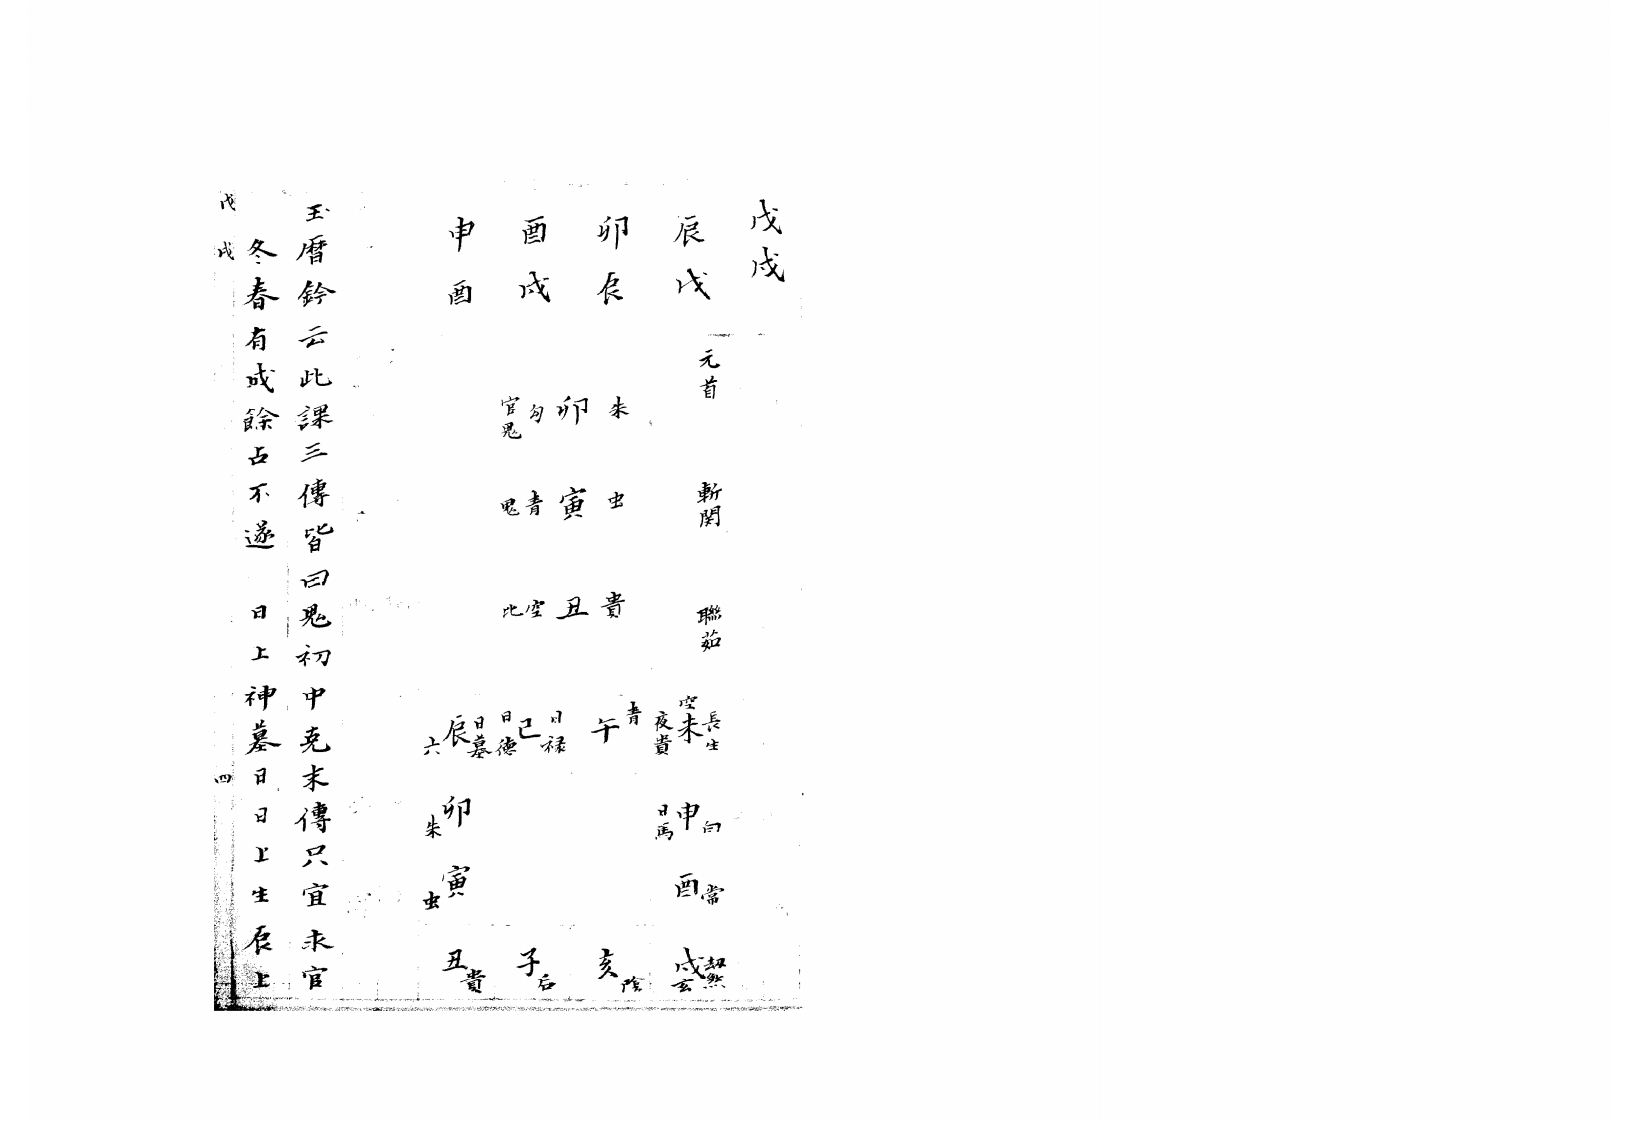 戊戌
辰戊
卯辰
酉戌
申酉
元首
斬関
聯茹
朱卯勾官鬼
虫寅青鬼
貴丑空比
長生
未空
夜貴
青午
日禄
巳
日德
日墓
辰六
申日馬
卯朱
酉常
寅虫
戌玄劫煞
亥陰
子后
丑貴
玉暦鈐云此課三傳皆曰鬼初中克末傳只宜求官
冬春有成餘占不遂 日上神墓日日上生辰上
戊戌 四